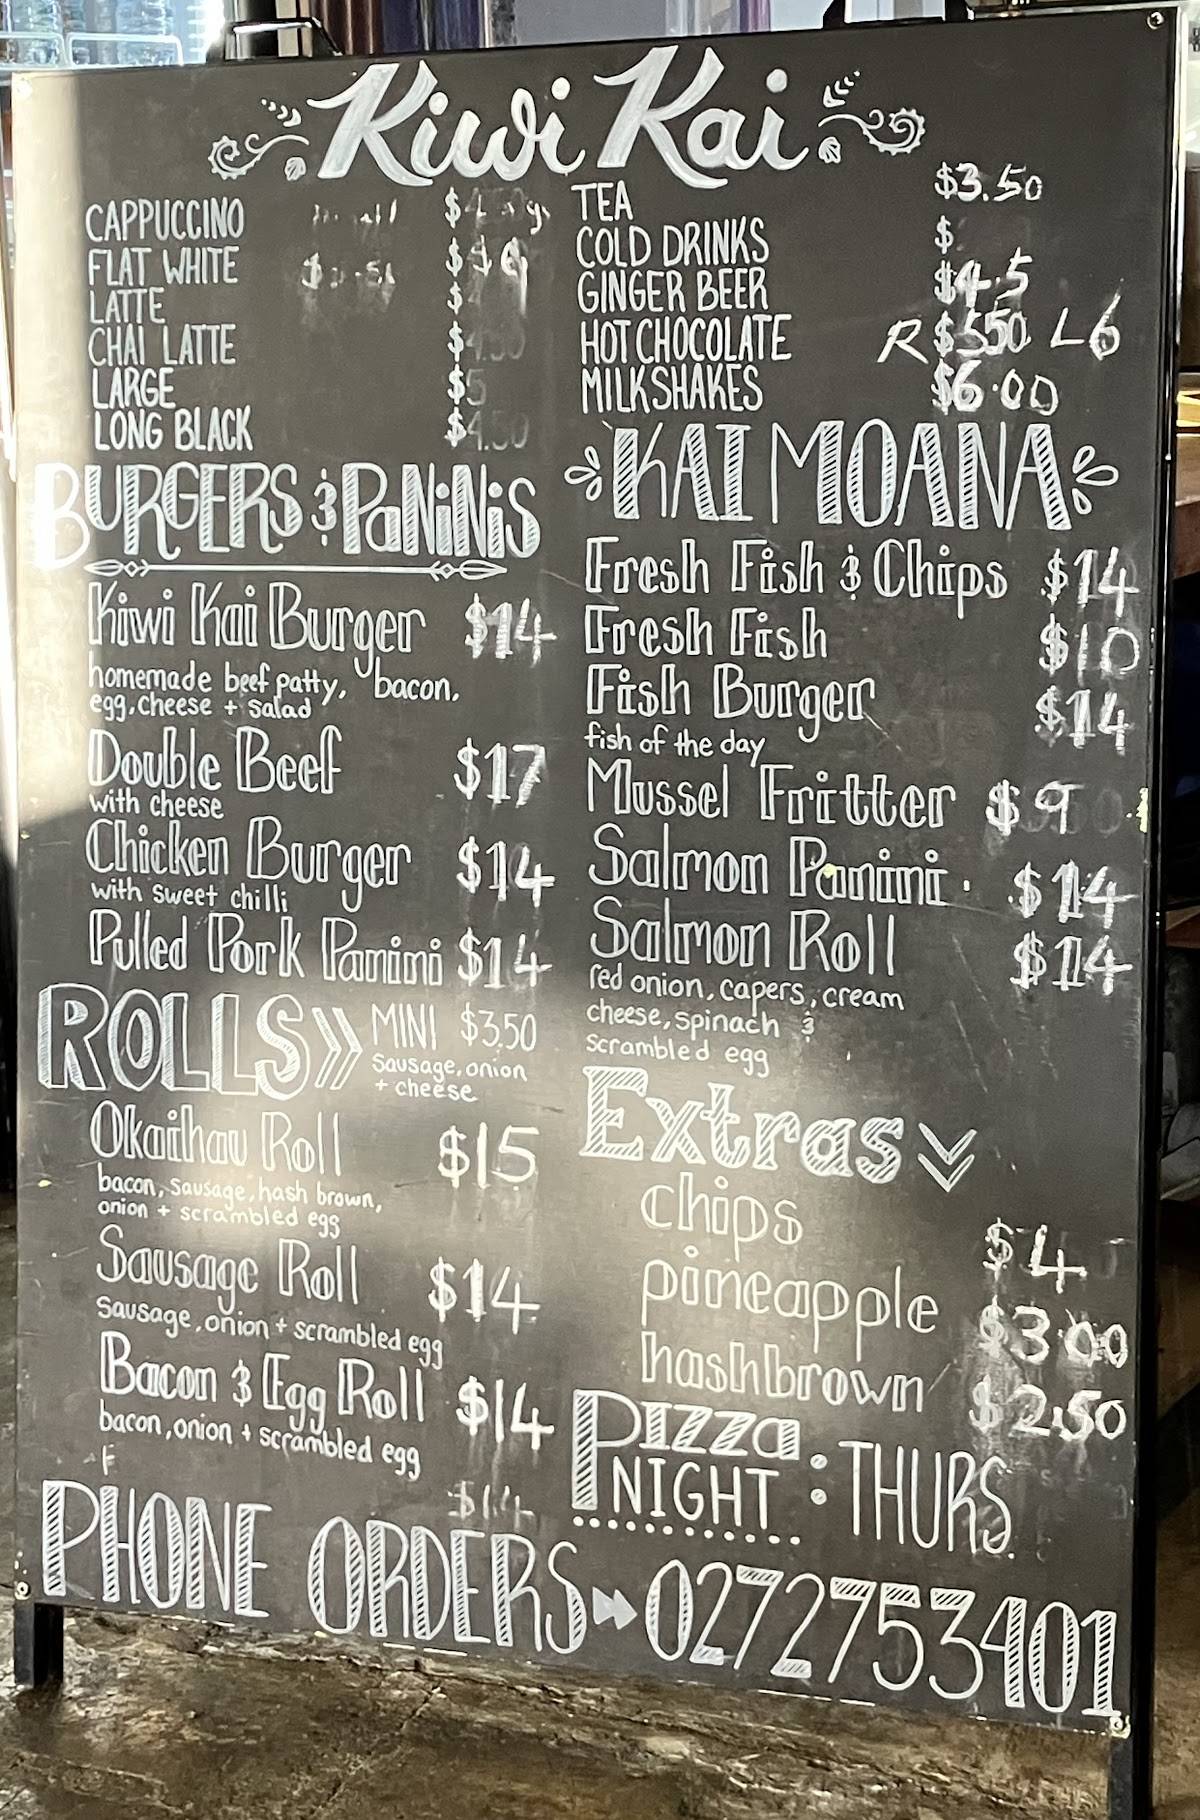 Kiwi Kai
CAPPUCCINO $
FLAT WHITE $
LATTE $
CHAI LATTE $4.50
LARGE $5
LONG BLACK $4.50
TEA $3.50
COLD DRINKS $
GINGER BEER $4.5
HOT CHOCOLATE R $550 L6
MILKSHAKES $6.00
BURGERS & PaNiNiS
Kiwi Kai Burger $14
homemade beef patty, bacon,
egg, cheese + salad
Double Beef $17
with cheese
Chicken Burger $14
with sweet chilli
Pulled Pork Panini $14
ROLLS » MINI $3.50
sausage, onion
+ cheese
Okaihau Roll $15
bacon, sausage, hash brown,
onion + scrambled egg
Sausage Roll $14
sausage, onion + scrambled egg
Bacon & Egg Roll $14
bacon, onion + scrambled egg
$14
KAI MOANA
Fresh Fish & Chips $14
Fresh Fish $10
Fish Burger $14
fish of the day
Mussel Fritter $9
Salmon Panini $14
Salmon Roll $14
red onion, capers, cream
cheese, spinach &
scrambled egg
Extras
chips $4
pineapple $3.00
hashbrown $2.50
PIZZa
NIGHT : THURS
PHONE ORDERS 0272753401